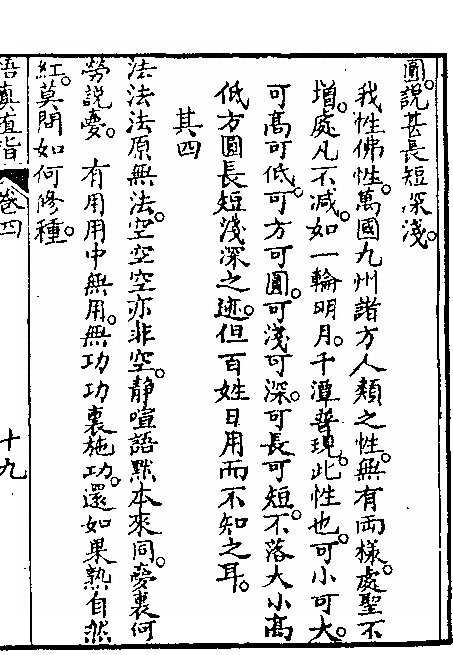 圓。說甚長短深淺。
我性佛性。萬國九州諸方人類之性。無有兩樣。處聖不
增。處凡不減。如一輪明月。千潭普現。此性也。可小可大。
可高可低。可方可圓。可淺可深。可長可短。不落大小高
低方圓長短淺深之迹。但百姓日用而不知之耳。
其四
法法法原無法。空空空亦非空。靜喧語默本來同。夢裏何
勞說夢。 有用用中無用。無功功裏施功。還如果熟自然
紅。莫問如何修種。
悟真直指 卷四 十九